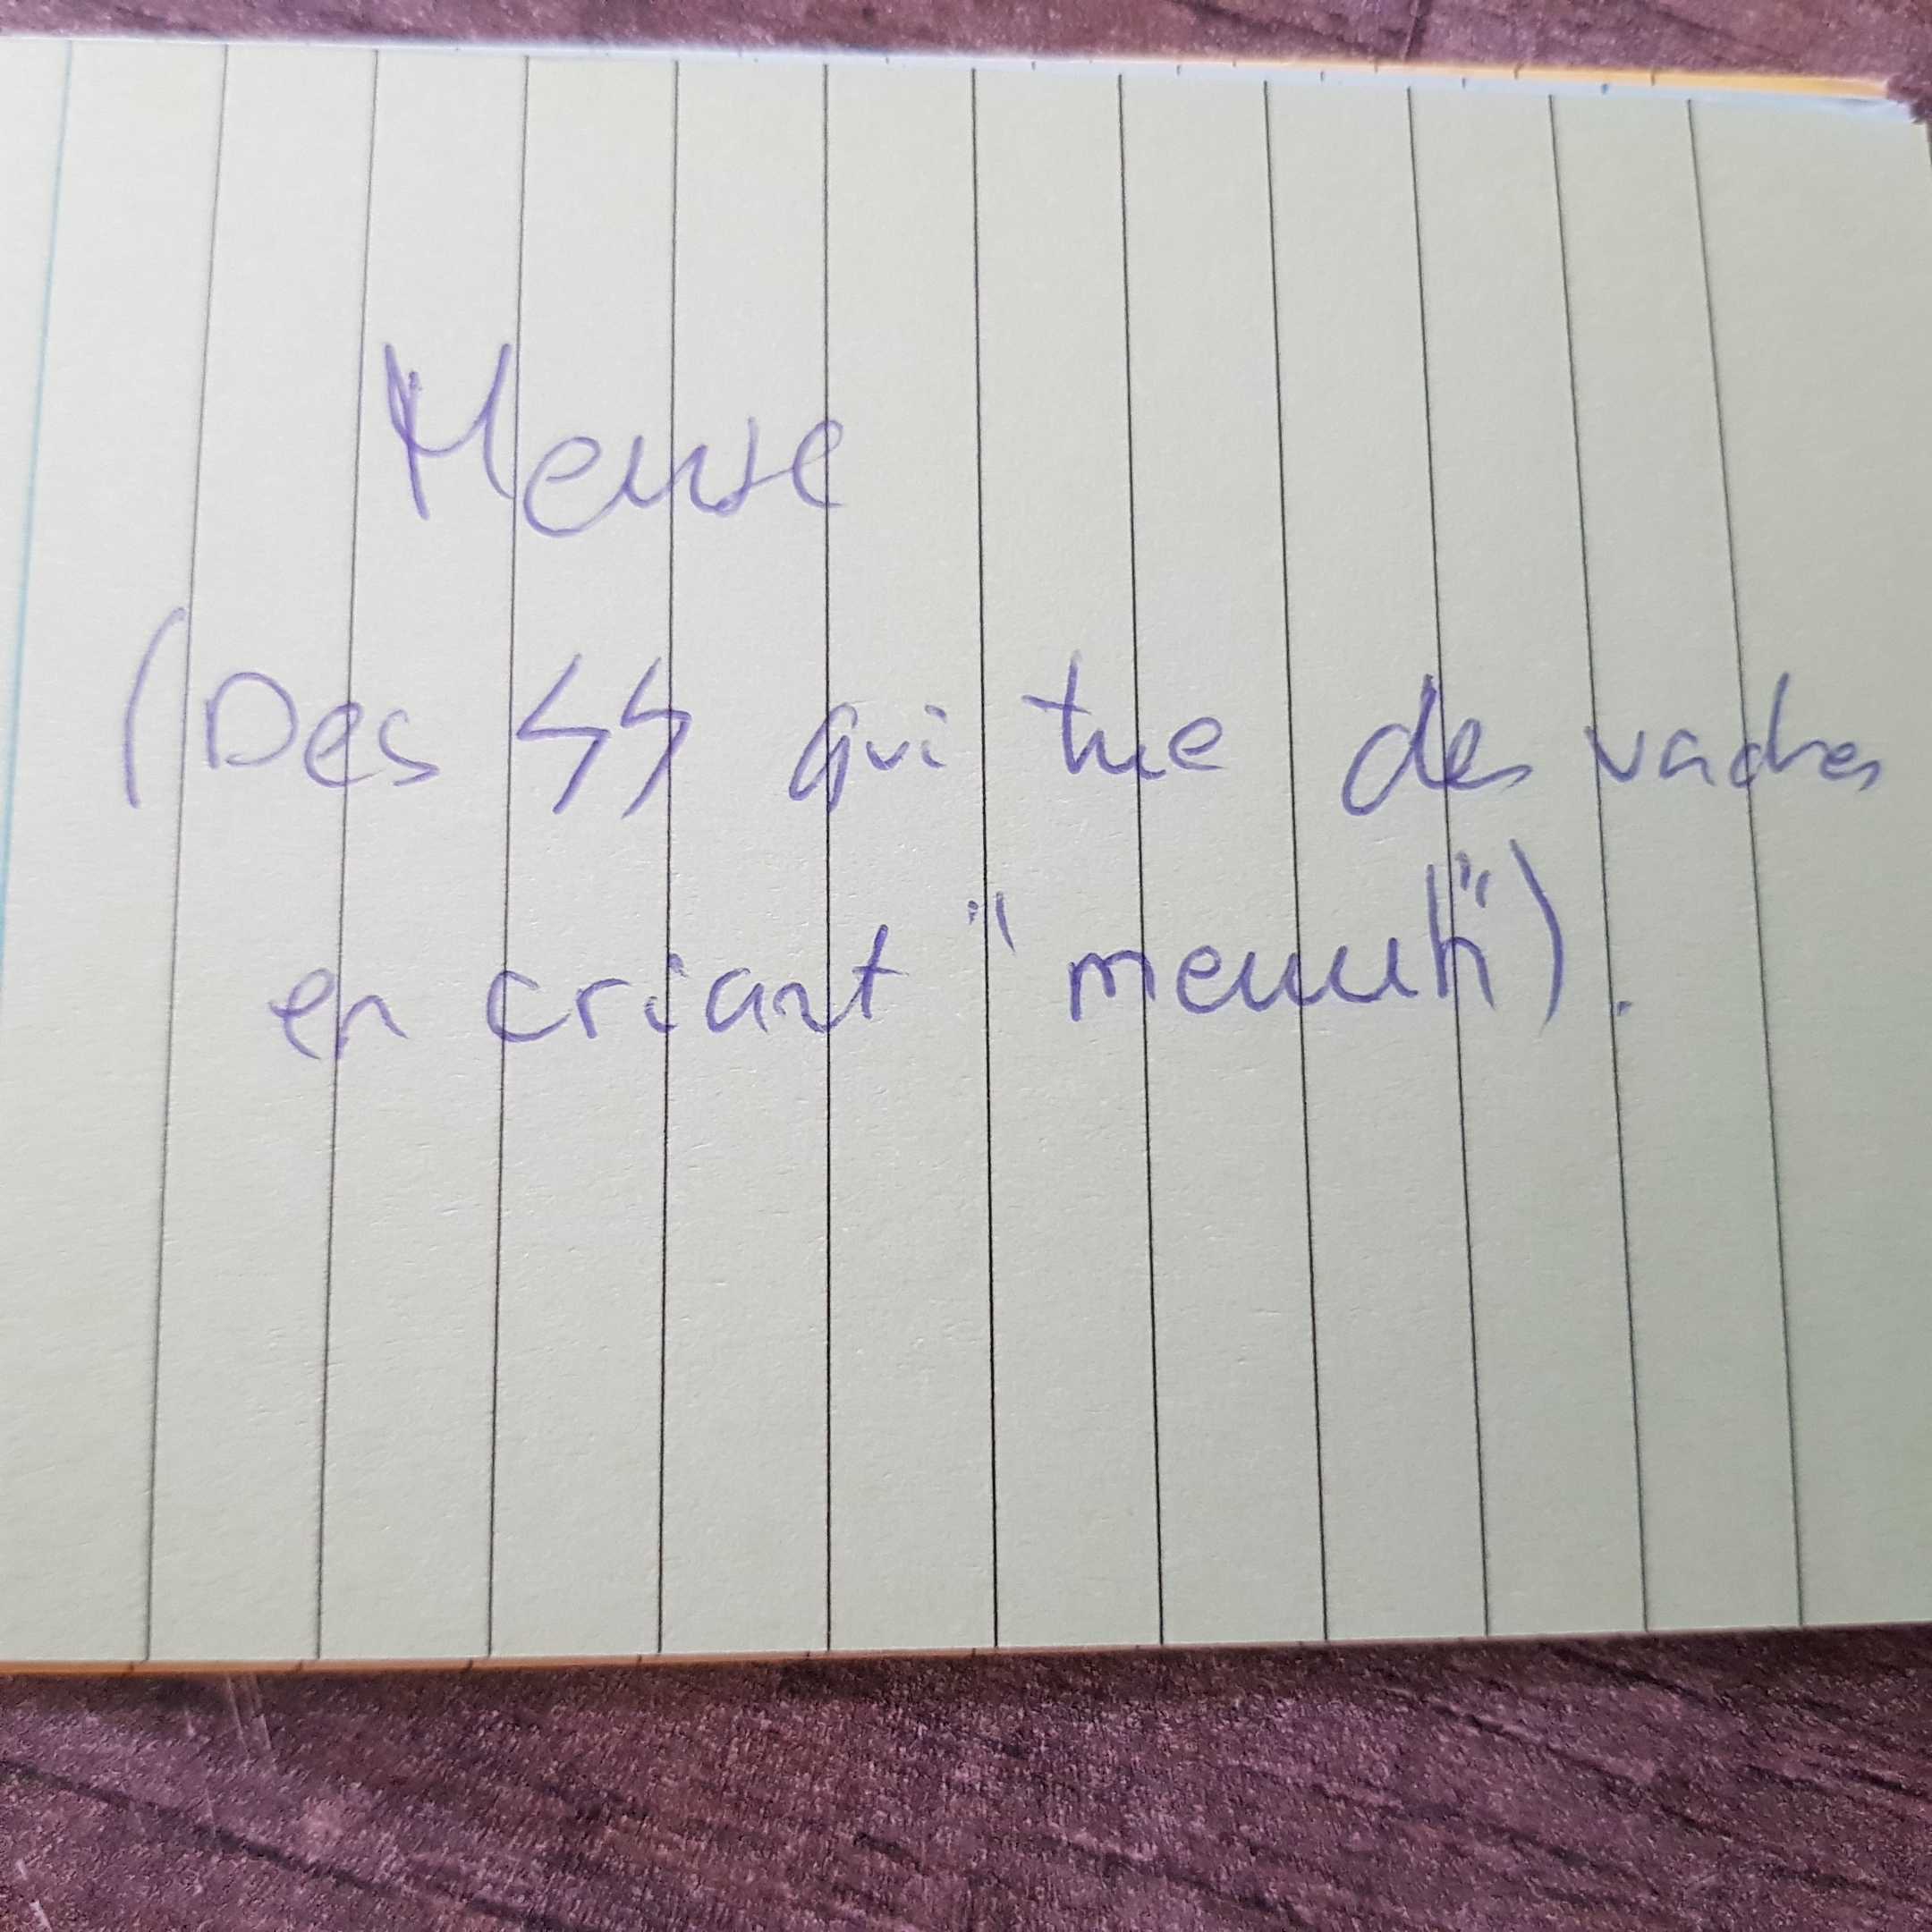 Meuse
(Des SS qui tue des vaches
en criant "meuuh").